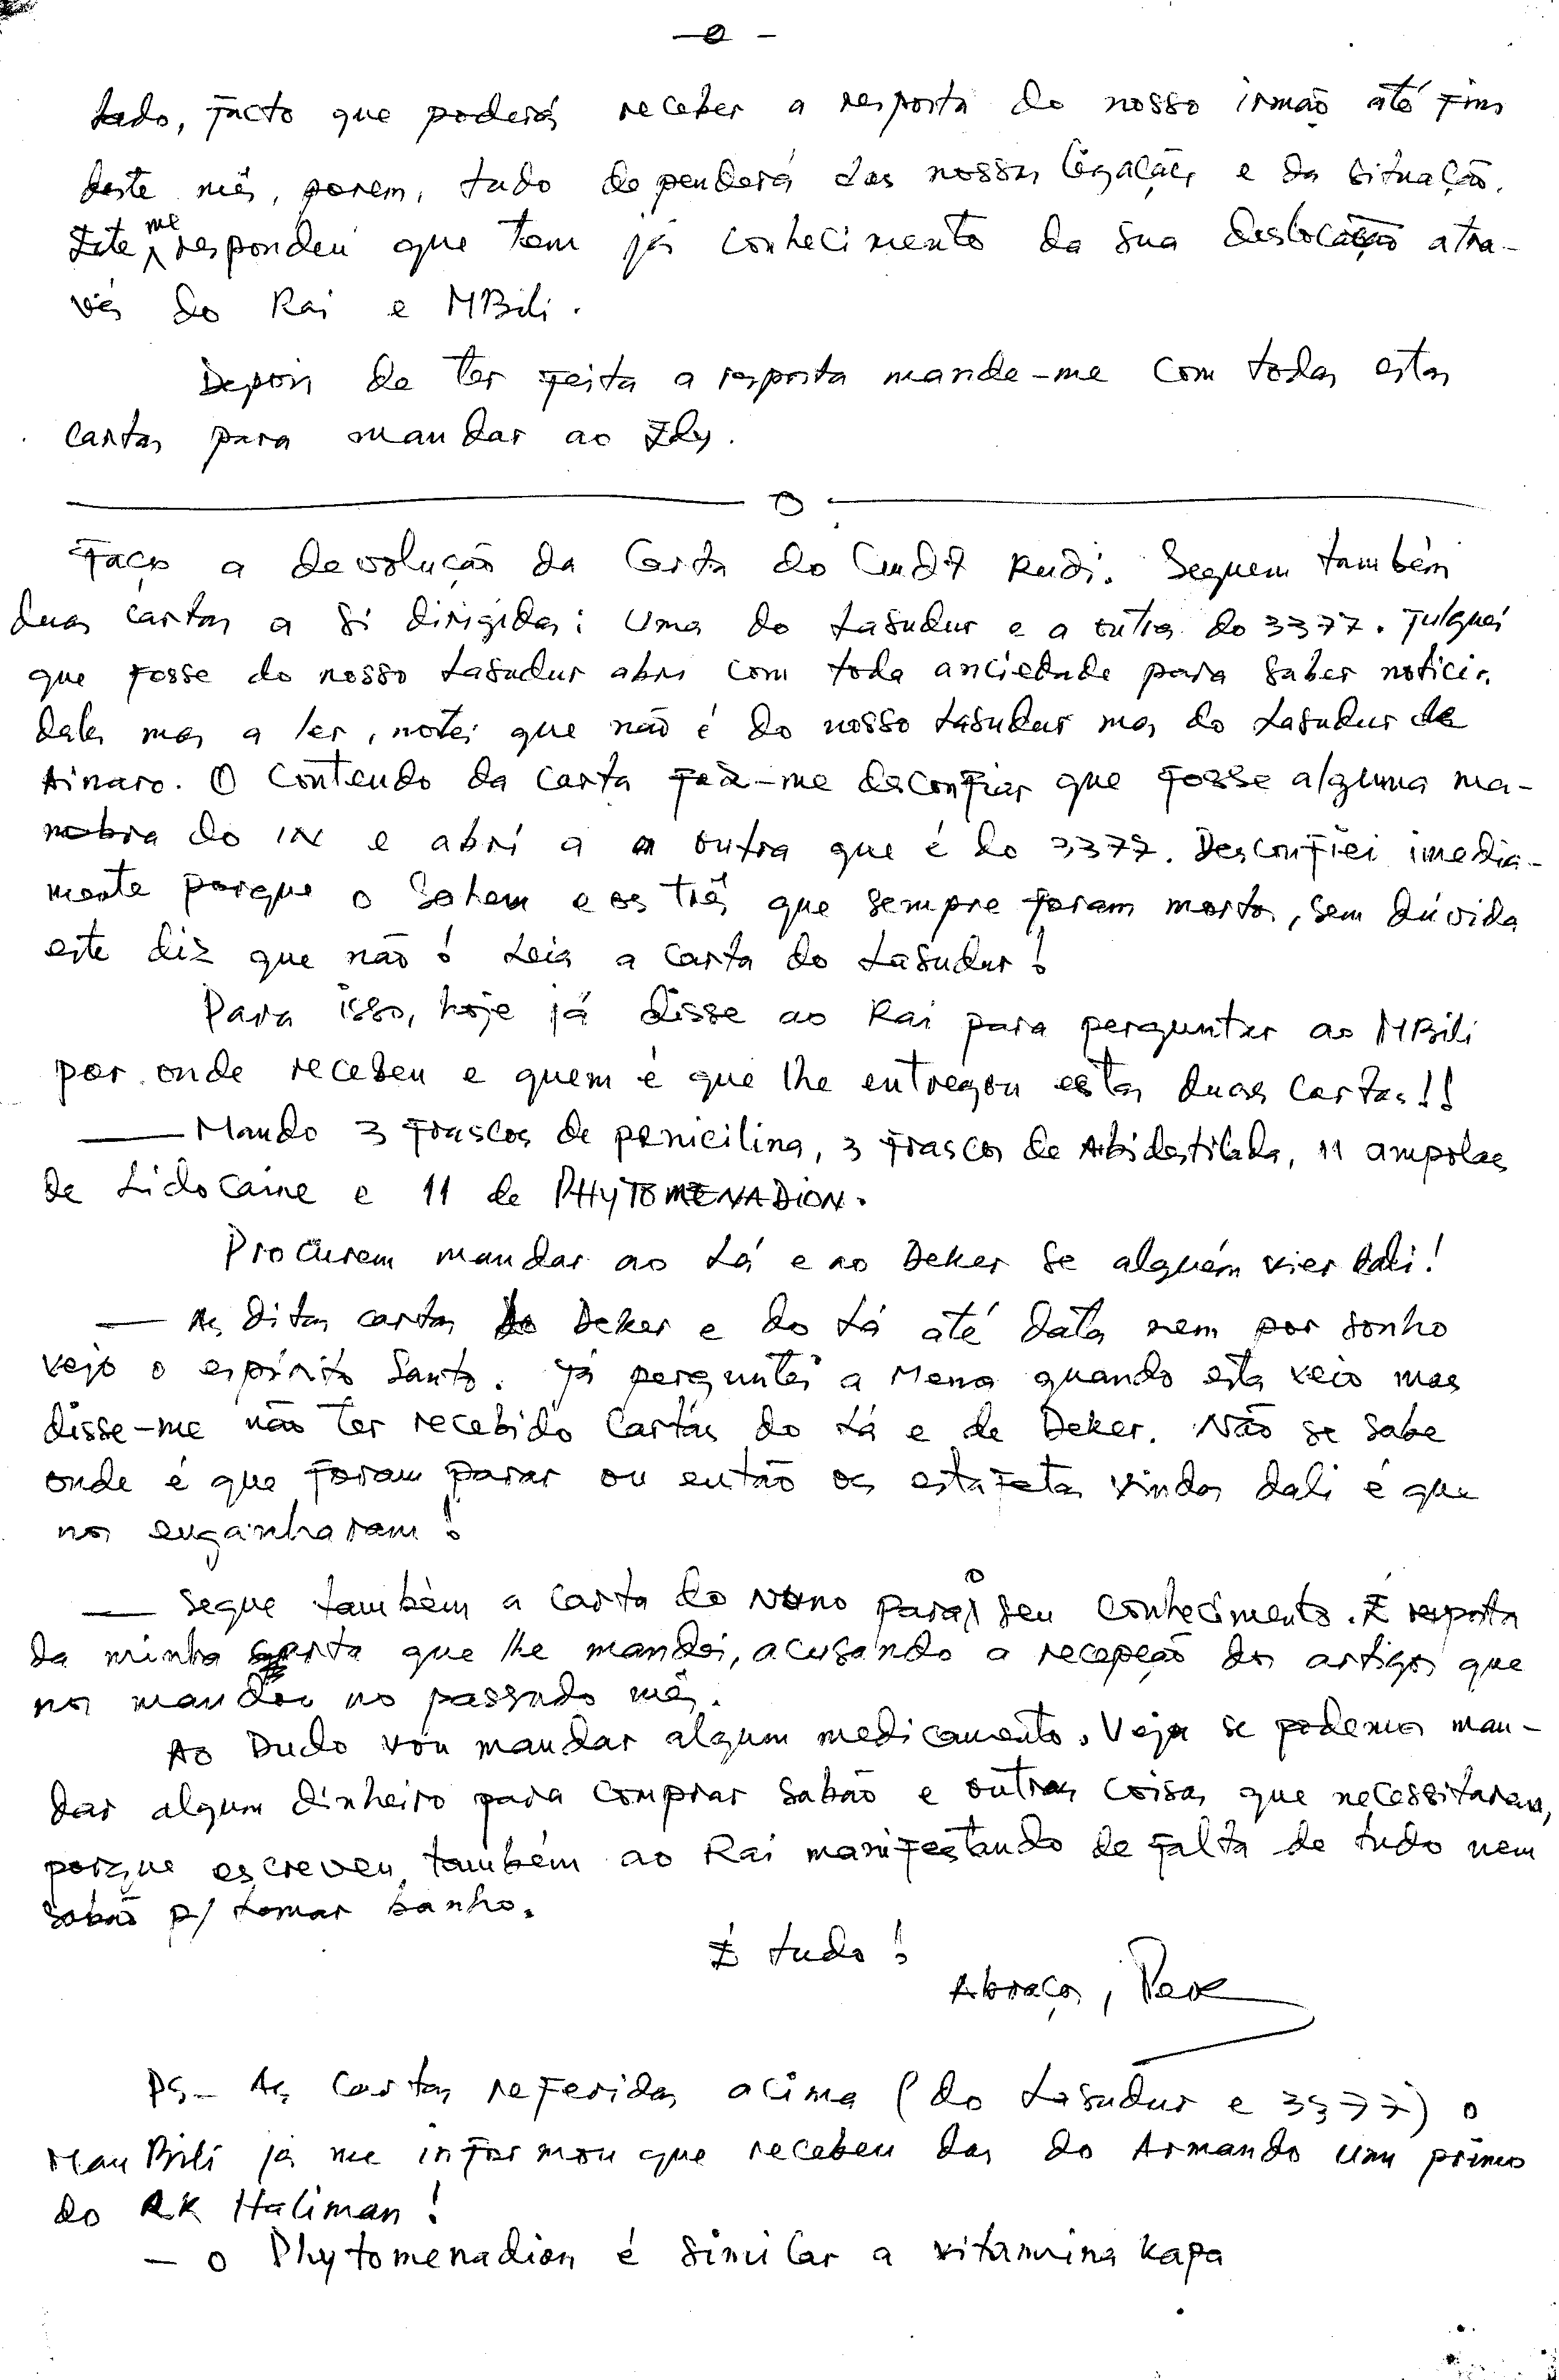 - 2 -
tado, facto que poderá receber a resposta do nosso irmão até fins
deste mês, porem, tudo dependerá das nossas ligações e da situação.
Este me respondeu que tem já conhecimento da sua deslocação atra-
vés do Rai e MBili.
Depois de ter feita a resposta mande-me com todas estas
cartas para mandar ao
Faço a devolução da Carta do Cmdt Rudi. Seguem também
duas cartas a si dirigidas: Uma do Lasudur e a outra do 3377. Julguei
que fosse do nosso Lasudur abri com toda anciedade para saber noticias
dales mas a ler, notei que não é do nosso Lasudur mas do Lasudur de
Ainaro. O Conteudo da Carta fez-me desconfiar que fosse alguma ma-
nobra do IN e abri a outra que é do 3377. Desconfiei imedia-
mente porque o Sahem e os três que sempre foram mortos, sem dúvida
este diz que não! Leia a Carta do Lasudur!
Para isso, hoje já disse ao Rai para perguntar ao MBili
por onde recebeu e quem é que lhe entregou estas duas Cartas!!
— Mando 3 frascos de penicilina, 3 frascos de Abidestilada, 11 ampolas
de Lidocaine e 11 de PHYTOMENADION.
Procurem mandar ao Lá e ao Deker se alguém vier dali!
— As ditas cartas do Deker e do Lá até data nem por sonho
vejo o espírito Santo. Já perguntei a Mena quando esta veio mas
disse-me não ter recebido Cartas do Lá e de Deker. Não se sabe
onde é que foram parar ou então os estafetas vindos dali é que
nos enganharam!
— Segue também a Carta do Nono para o seu Conhecimento. É resposta
da minha carta que lhe mandei, acusando a recepção dos artigos que
nos mandou no passado mês.
Ao Dudo vou mandar algum medicamento. Veja se podemos man-
dar algum dinheiro para comprar sabão e outras coisas que necessitaram,
porque escreveu também ao Rai manifestando de falta de tudo nem
sabão p/ tomar banho.
É tudo!
Abraços,
PS- As Cartas referidas acima (do Lasudur e 3377) o
Mau Bili já me informou que recebeu das do Armando um primo
do RK Haliman!
— O Phytomenadion é similar a vitamina kapa